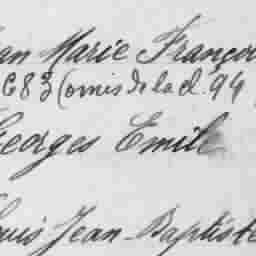 an Marie Françoi
683 (omis de la cl. 94
Georges Emile
Louis Jean-Baptiste